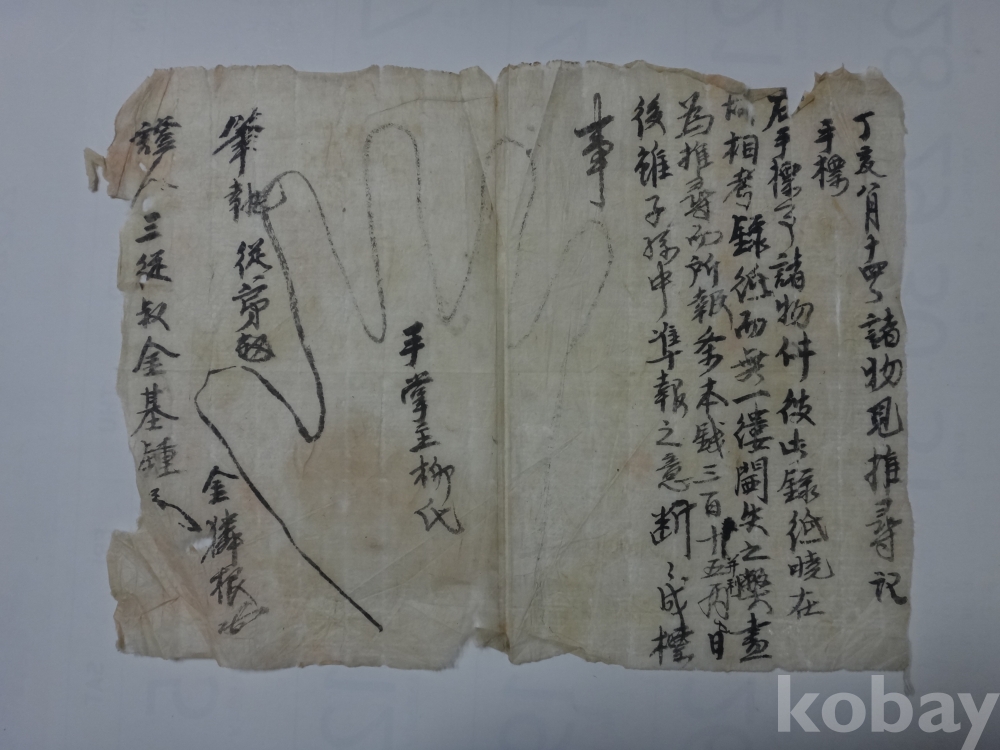 丁亥八月十四日諸物見推尋記
手標
右手標事諸物件彼此錄紙曉在
相考錄紙而無一縷閪失之弊盡
為推尋而所報条本戔三百十五両
後雖子孫中準報之意斷〻成標
事
手掌主柳氏
筆執從弟
金麟根
證人三從叔金基鍾
kobay